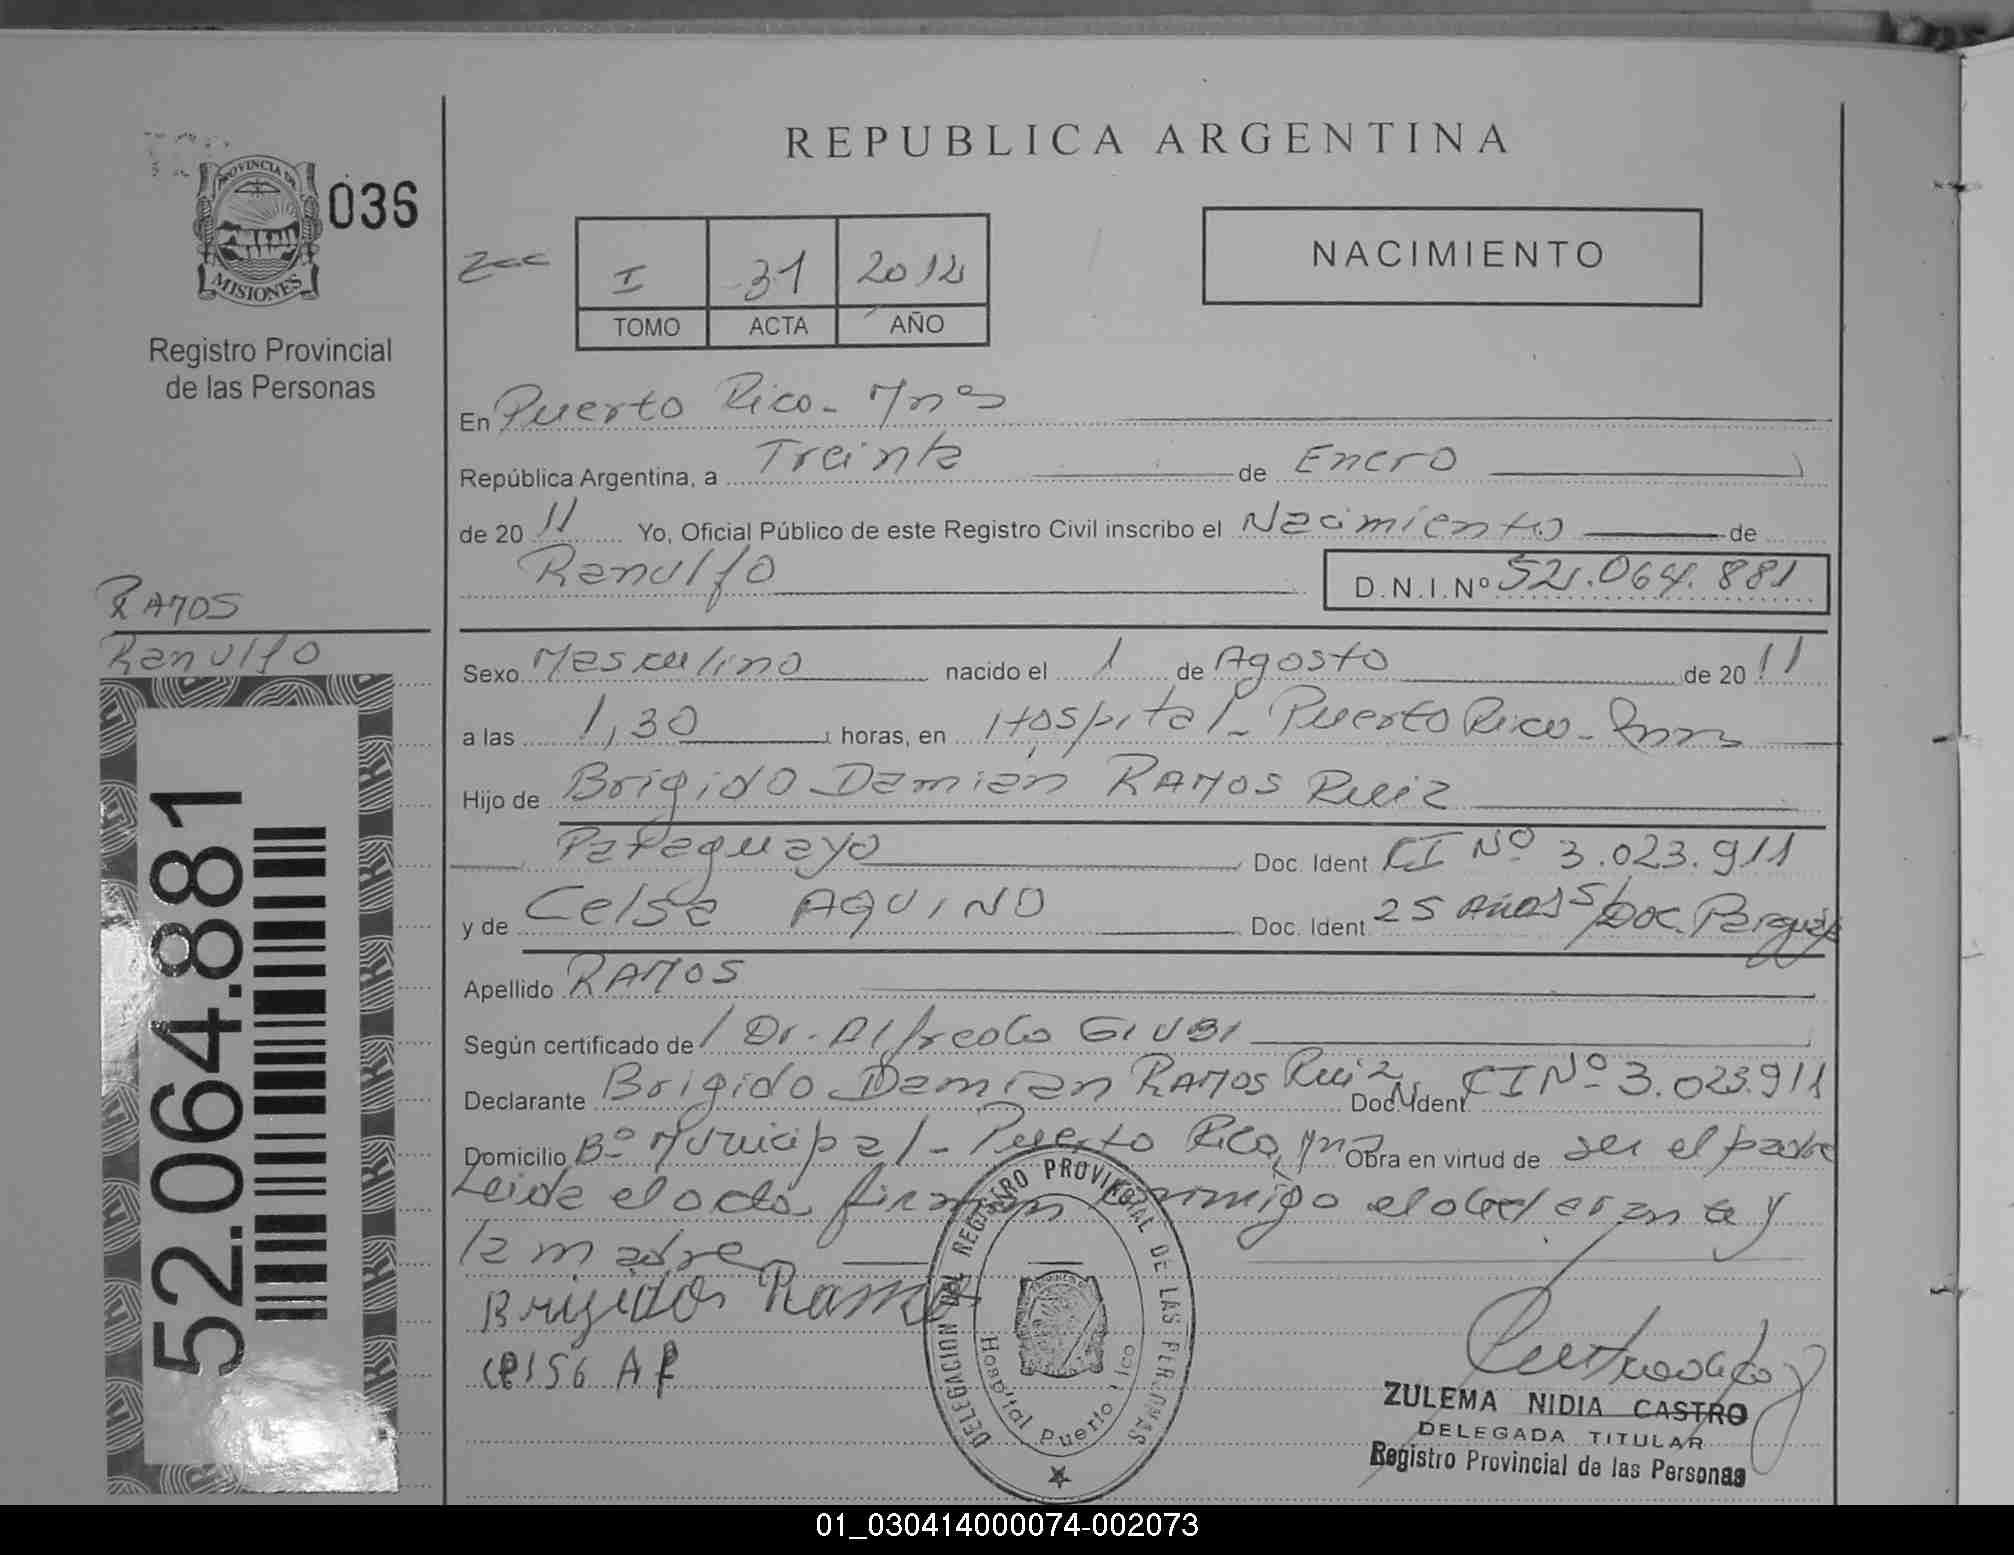 REPUBLICA ARGENTINA
PROVINCIA DE
MISIONES
036
Registro Provincial
de las Personas
I 31 2012
TOMO ACTA AÑO
NACIMIENTO
En Puerto Rico - Mnes
República Argentina, a Treinta de Enero
de 20 11 Yo, Oficial Público de este Registro Civil inscribo el Nacimiento de
Ranulfo D.N.I.Nº 52.064.881
RAMOS
Ranulfo
Sexo Masculino nacido el 1 de Agosto de 20 11
a las 1,30 horas, en Hospital - Puerto Rico - Mnes
Hijo de Brigido Damian RAMOS Ruiz
Paraguayo Doc. Ident CI Nº 3.023.911
y de Celsa AQUINO Doc. Ident 25 Años S/Doc. Paraguaya
Apellido RAMOS
Según certificado de Dr. Alfredo GIUBI
Declarante Brigido Damian RAMOS Ruiz Doc. Ident CI Nº 3.023.911
Domicilio Bº Municipal - Puerto Rico, Mnes Obra en virtud de ser el padre
Leida el acta firman conmigo el declarante y
la madre
Brigido Ramos
52.064.881
DELEGACION DEL REGISTRO PROVINCIAL DE LAS PERSONAS
Hospital Puerto Rico
ZULEMA NIDIA CASTRO
DELEGADA TITULAR
Registro Provincial de las Personas
01_030414000074-002073